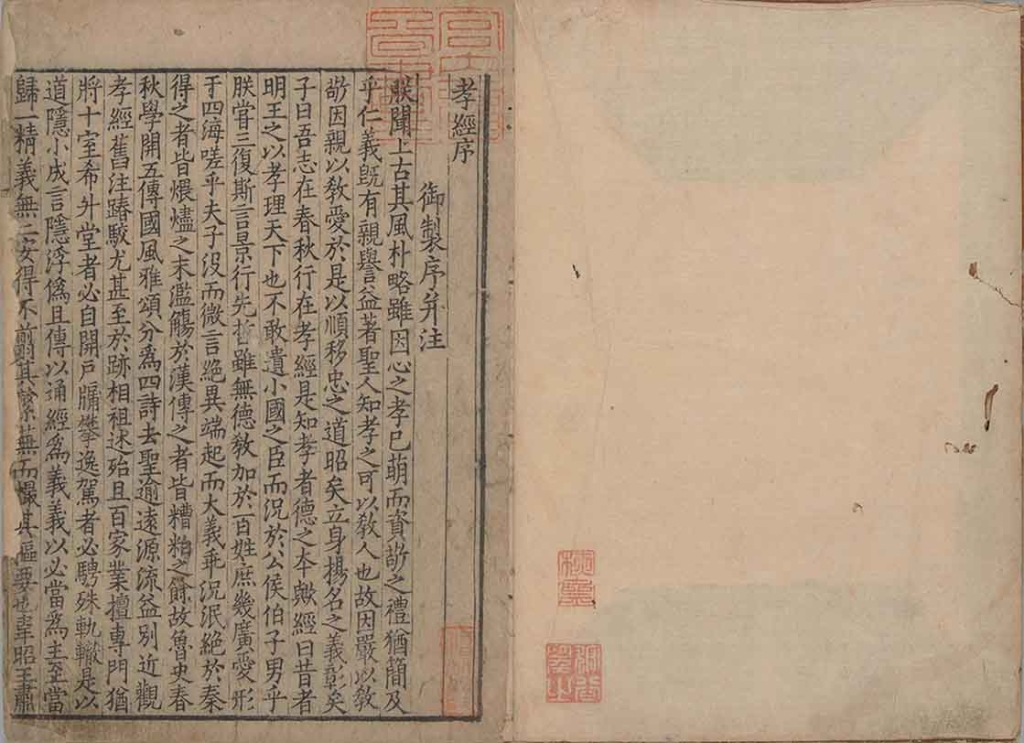 孝經序
御製序并注
朕聞上古其風朴略雖因心之孝已萌而資敬之禮猶簡及
乎仁義既有親譽益著聖人知孝之可以教人也故因嚴以教
敬因親以教愛於是以順移忠之道昭矣立身揚名之義彰矣
子曰吾志在春秋行在孝經是知孝者德之本歟經曰昔者
明王之以孝理天下也不敢遺小國之臣而況於公侯伯子男乎
朕嘗三復斯言景行先哲雖無德教加於百姓庶幾廣愛形
于四海嗟乎夫子没而微言絶異端起而大義乖況泯絶於秦
得之者皆煨燼之末濫觴於漢傳之者皆糟粕之餘故魯史春
秋學開五傳國風雅頌分爲四詩去聖逾遠源流益别近觀
孝經舊注踳駮尤甚至於跡相祖述殆且百家業擅專門猶
將十室希升堂者必自開戸牖攀逸駕者必騁殊軌轍是以
道隱小成言隱浮僞且傳以通經爲義義以必當爲主至當
歸一精義無二安得不翦其繁蕪而撮其樞要也韋昭王肅